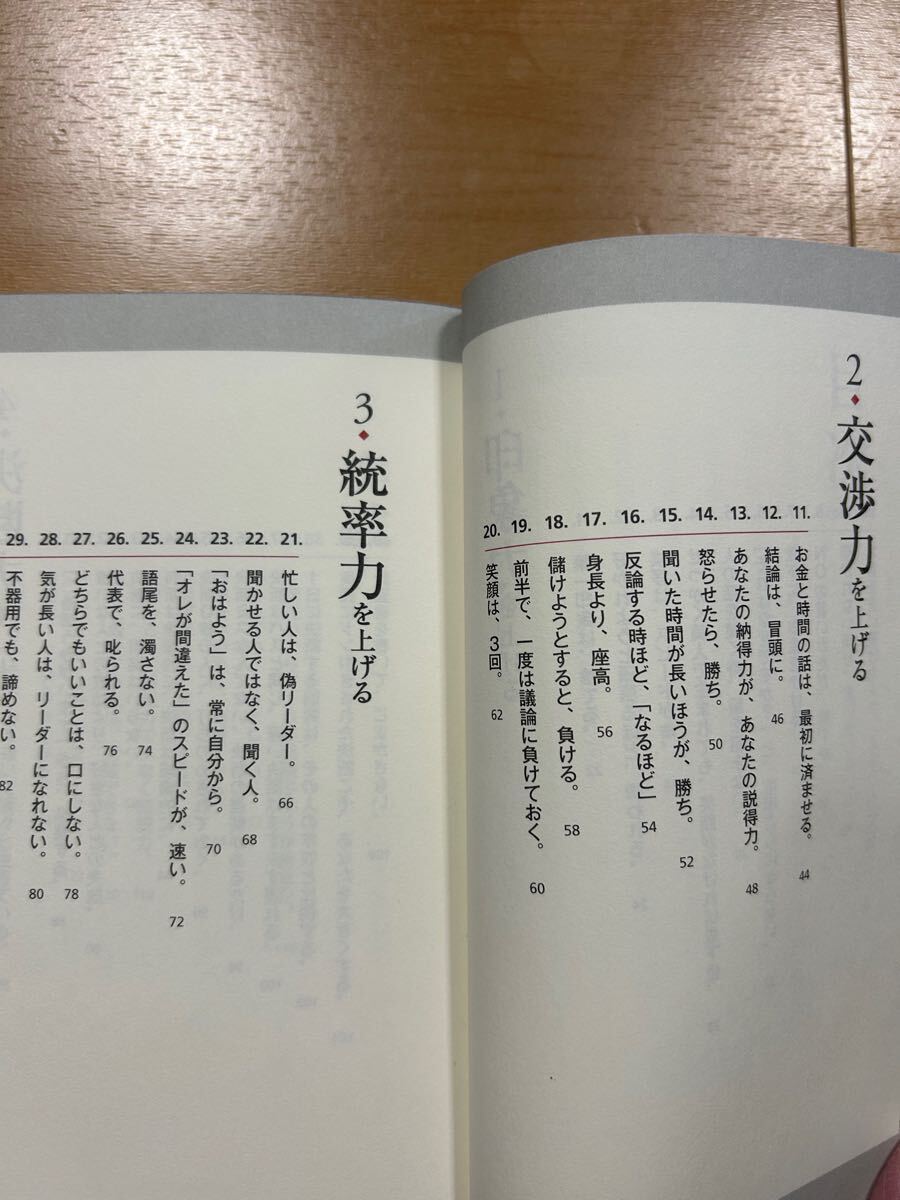 2◆交渉力を上げる
11. お金と時間の話は、最初に済ませる。 44
12. 結論は、冒頭に。 46
13. あなたの納得力が、あなたの説得力。 48
14. 怒らせたら、勝ち。 50
15. 聞いた時間が長いほうが、勝ち。 52
16. 反論する時ほど、「なるほど」 54
17. 身長より、座高。 56
18. 儲けようとすると、負ける。 58
19. 前半で、一度は議論に負けておく。 60
20. 笑顔は、3回。 62
3◆統率力を上げる
21. 忙しい人は、偽リーダー。 66
22. 聞かせる人ではなく、聞く人。 68
23. 「おはよう」は、常に自分から。 70
24. 「オレが間違えた」のスピードが、速い。 72
25. 語尾を、濁さない。 74
26. 代表で、叱られる。 76
27. どちらでもいいことは、口にしない。 78
28. 気が長い人は、リーダーになれない。 80
29. 不器用でも、諦めない。 82